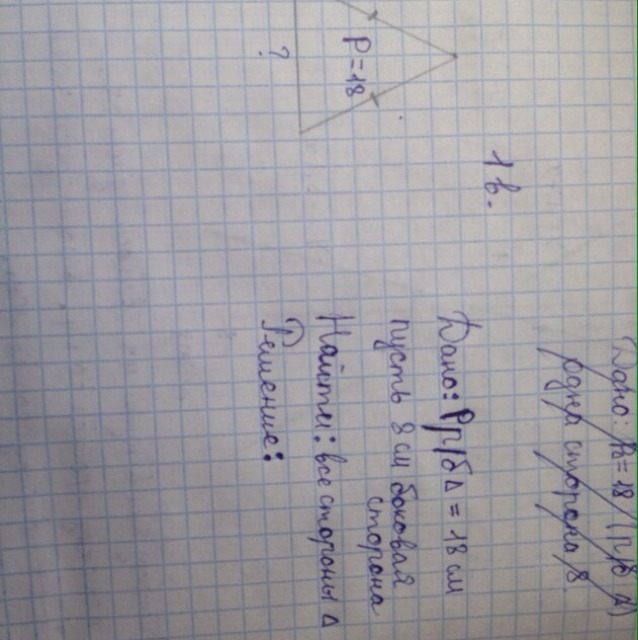 Дано: P△=18 (р/б △)
одна сторона 8
1 в.
Дано: Pр/б△ = 18 см
пусть 8 см боковая
сторона
Найти: все стороны △
Решение:
P=18
?